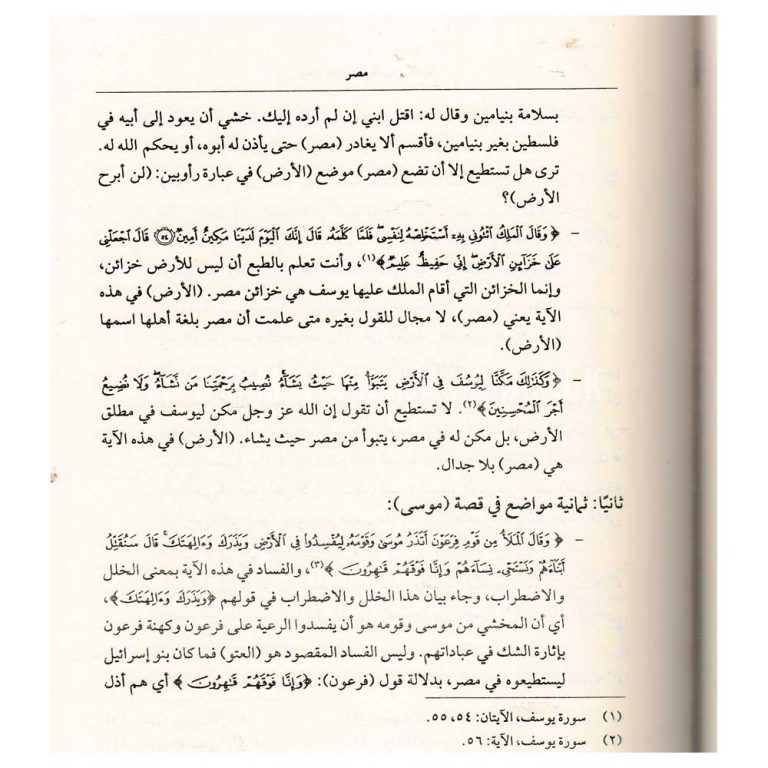 مصر
بسلامة بنيامين وقال له: اقتل ابني إن لم أرده إليك. خشي أن يعود إلى أبيه في
فلسطين بغير بنيامين، فأقسم ألا يغادر (مصر) حتى يأذن له أبوه، أو يحكم الله له.
ترى هل تستطيع إلا أن تضع (مصر) موضع (الأرض) في عبارة رأوبين: (لن أبرح
الأرض)؟
- ﴿وَقَالَ الْمَلِكُ ائْتُونِي بِهِۦٓ أَسْتَخْلِصْهُ لِنَفْسِي ۖ فَلَمَّا كَلَّمَهُۥ قَالَ إِنَّكَ الْيَوْمَ لَدَيْنَا مَكِينٌ أَمِينٌ ﴿٥٤﴾ قَالَ اجْعَلْنِي
عَلَىٰ خَزَآئِنِ الْأَرْضِ ۖ إِنِّي حَفِيظٌ عَلِيمٌ﴾(١)، وأنت تعلم بالطبع أن ليس للأرض خزائن،
وإنما الخزائن التي أقام الملك عليها يوسف هي خزائن مصر. (الأرض) في هذه
الآية يعني (مصر)، لا مجال للقول بغيره متى علمت أن مصر بلغة أهلها اسمها
(الأرض).
- ﴿وَكَذَٰلِكَ مَكَّنَّا لِيُوسُفَ فِي الْأَرْضِ يَتَبَوَّأُ مِنْهَا حَيْثُ يَشَآءُ ۚ نُصِيبُ بِرَحْمَتِنَا مَن نَّشَآءُ ۖ وَلَا نُضِيعُ
أَجْرَ الْمُحْسِنِينَ﴾(٢). لا تستطيع أن تقول إن الله عز وجل مكن ليوسف في مطلق
الأرض، بل مكن له في مصر، يتبوأ من مصر حيث يشاء. (الأرض) في هذه الآية
هي (مصر) بلا جدال.
ثانيًا: ثمانية مواضع في قصة (موسى):
- ﴿وَقَالَ الْمَلَأُ مِن قَوْمِ فِرْعَوْنَ أَتَذَرُ مُوسَىٰ وَقَوْمَهُۥ لِيُفْسِدُوا فِي الْأَرْضِ وَيَذَرَكَ وَءَالِهَتَكَ ۚ قَالَ سَنُقَتِّلُ
أَبْنَآءَهُمْ وَنَسْتَحْيِۦ نِسَآءَهُمْ وَإِنَّا فَوْقَهُمْ قَٰهِرُونَ﴾(٣)، والفساد في هذه الآية بمعنى الخلل
والاضطراب، وجاء بيان هذا الخلل والاضطراب في قولهم ﴿وَيَذَرَكَ وَءَالِهَتَكَ﴾،
أي أن المخشي من موسى وقومه هو أن يفسدوا الرعية على فرعون وكهنة فرعون
بإثارة الشك في عباداتهم. وليس الفساد المقصود هو (العتو) فما كان بنو إسرائيل
ليستطيعوه في مصر، بدلالة قول (فرعون): ﴿وَإِنَّا فَوْقَهُمْ قَٰهِرُونَ﴾ أي هم أذل
(١) سورة يوسف، الآيتان: ٥٤، ٥٥.
(٢) سورة يوسف، الآية: ٥٦.